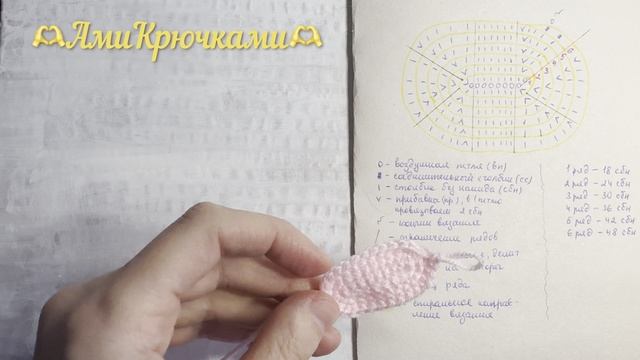 АмиКрючками
о - воздушная петля (вп)
- соединительный столбик (сс)
ı - столбик без накида (сбн)
v - прибавка (пр), в 1 петлю
провязываем 2 сбн
- конец вязания
/ - ограничение рядов
делит
на
ряда
спиральное направ-
ление вязания
1 ряд - 18 сбн
2 ряд - 24 сбн
3 ряд - 30 сбн
4 ряд - 36 сбн
5 ряд - 42 сбн
6 ряд - 48 сбн